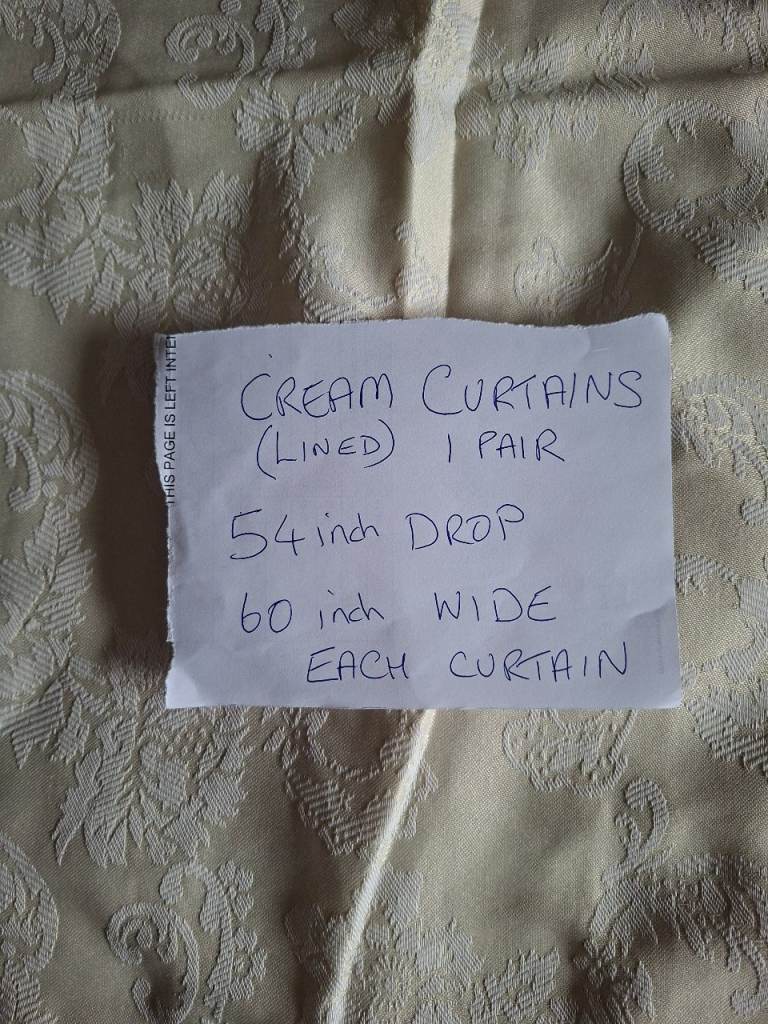 THIS PAGE IS LEFT INTE
CREAM CURTAINS
(LINED) 1 PAIR
54 inch DROP
60 inch WIDE
EACH CURTAIN